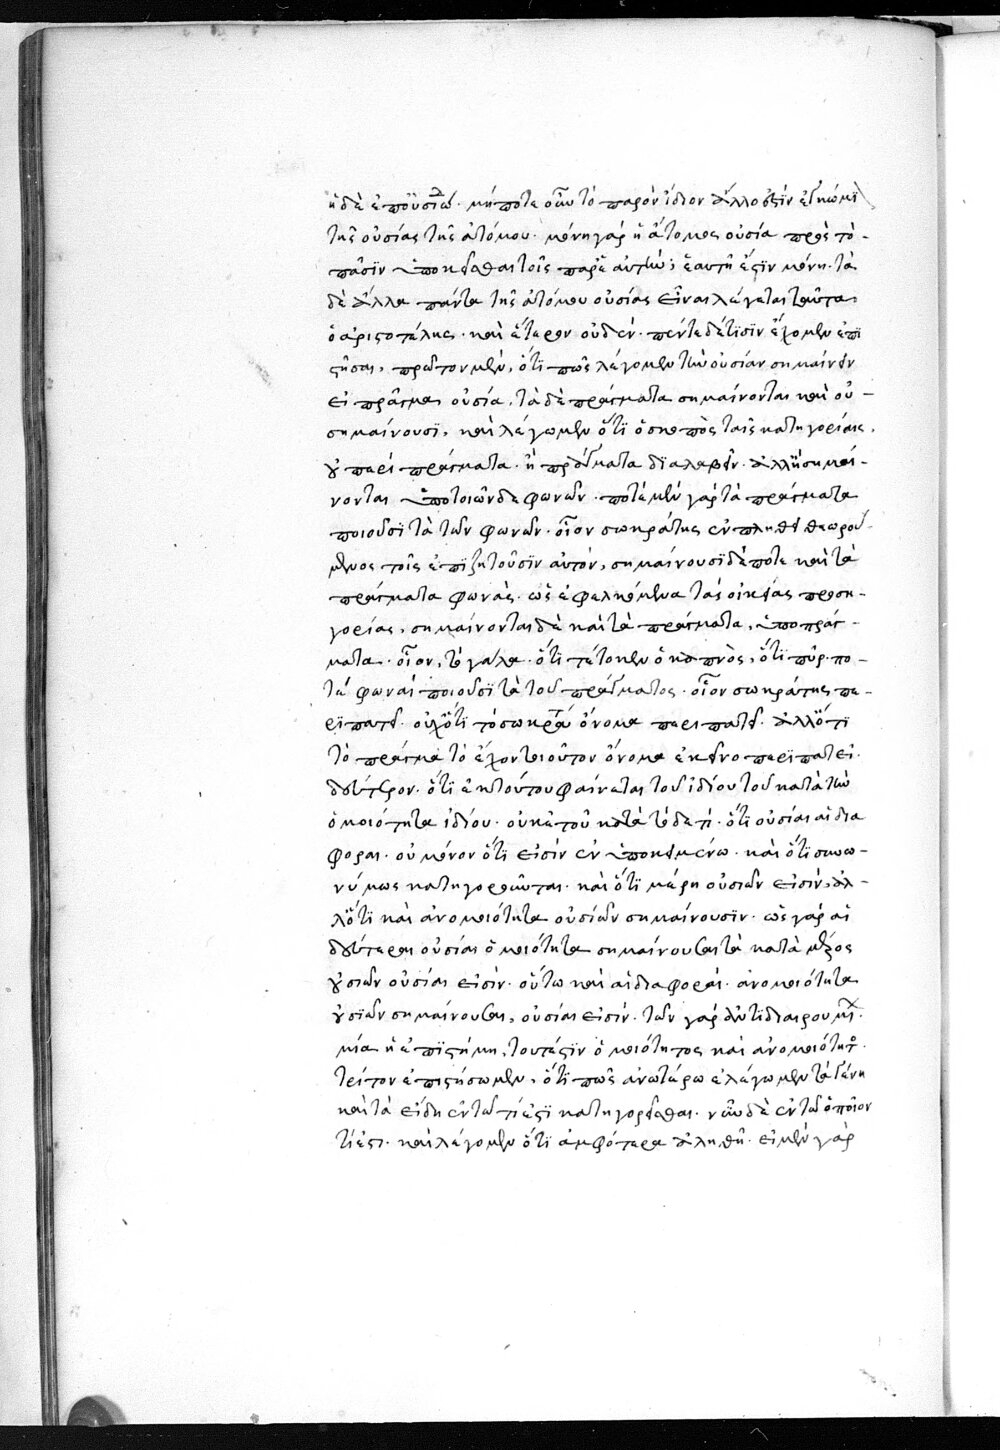 ἡ δὲ ἐπουσιω. μήποτε οὖν τὸ παρὸν ἴδιον ἄλλο ἐστὶν
τῆς οὐσίας τῆς ἀτόμου. μόνη γὰρ ἡ ἄτομος οὐσία πρὸς τὸ
πᾶσιν ὑποκεῖσθαι τοῖς παρ' αὐτὴν; ἑαυτῇ ἐστὶν μόνη. τὰ
δὲ ἄλλα πάντα τῆς ἀτόμου οὐσίας εἶναι λέγεται ταῦτα
ὁ ἀριστοτέλης. καὶ ἕτερον οὐδέν. πέντε δέ τισιν ἔχομεν ἐπι
στῆσαι, πρῶτον μὲν, ὅτι πῶς λέγομεν τὴν οὐσίαν σημαίνειν
εἰ πρᾶγμα οὐσία, τὰ δὲ πράγματα σημαίνονται καὶ οὐ
σημαίνουσι, καὶ λέγωμεν ὅτι ὁ σκοπὸς ταῖς κατηγορίαις,
οὐ περὶ πράγματα. ἢ πράγματα διαλαβεῖν. ἀλλ' ἢ σημαί-
νονται ὑπὸ ποιῶν δὲ φωνῶν. ποτὲ μὲν γὰρ τὰ πράγματα
ποιοῦσι τὰ τῶν φωνῶν. οἷον σωκράτης ἐν πλήθει θεωρού-
μενος τοῖς ἐπιζητοῦσιν αὐτόν, σημαίνουσι δέ ποτε καὶ τὰ
πράγματα φωνὰς. ὡς ἐφελκόμενα τὰς οἰκείας προση
γορίας, σημαίνονται δὲ καὶ τὰ πράγματα, ὑπὸ πράγ-
ματα. οἷον, τὸ γάλα. ὅτι τέτοκεν ὁ καπνὸς, ὅτι πῦρ. πο-
τὲ φωναὶ ποιοῦσι τὰ τοῦ πράγματος. οἷον σωκράτης πε-
ριπατεῖ. οὐχ ὅτι τὸ σωκράτ ὄνομα περιπατεῖ. ἀλλ' ὅτι
τὸ πρᾶγμα τὸ ἔχον τοιοῦτον ὄνομα ἐκεῖνο περιπατεῖ.
δεύτερον. ὅτι ἐκ τούτου φαίνεται τοῦ ἰδίου τοῦ κατὰ τὴν
ὁμοιότητα ἰδίου. οὐκέτ τοῦ κατὰ τόδε τί. ὅτι οὐσίαι αἱ δια
φοραι. οὐ μόνον ὅτι εἰσὶν ἐν ὑποκειμένω. καὶ ὅτι συνω-
νύμως κατηγοροῦνται. καὶ ὅτι μέρη οὐσιῶν εἰσὶν, ἀλ-
λ' ὅτι καὶ ἀνομοιότητα οὐσιῶν σημαίνουσιν. ὡς γὰρ αἱ
δεύτεραι οὐσίαι ὁμοιότητα σημαίνουσαι τὰ κατὰ μέρος
οὐσιῶν οὐσίαι εἰσίν. οὕτω καὶ αἱ διαφοραί. ἀνομοιότητα
οὐσιῶν σημαίνουσαι, οὐσίαι εἰσίν. τῶν γὰρ ἀντιδιαιρουμ
μία ἡ ἐπιστήμη, τουτέστιν ὁμοιότητος καὶ ἀνομοιότητ.
τρίτον ἐπιστήσωμεν, ὅτι πῶς ἀνωτέρω ἐλέγωμεν τὰ γένη
καὶ τὰ εἴδη ἐν τῶ τί ἐστι κατηγορεῖσθαι. νῦν δὲ ἐν τῶ ὁποῖον
τί ἐστι. καὶ λέγομεν ὅτι ἀμφότερα ἀληθῆ. εἰ μὲν γὰρ